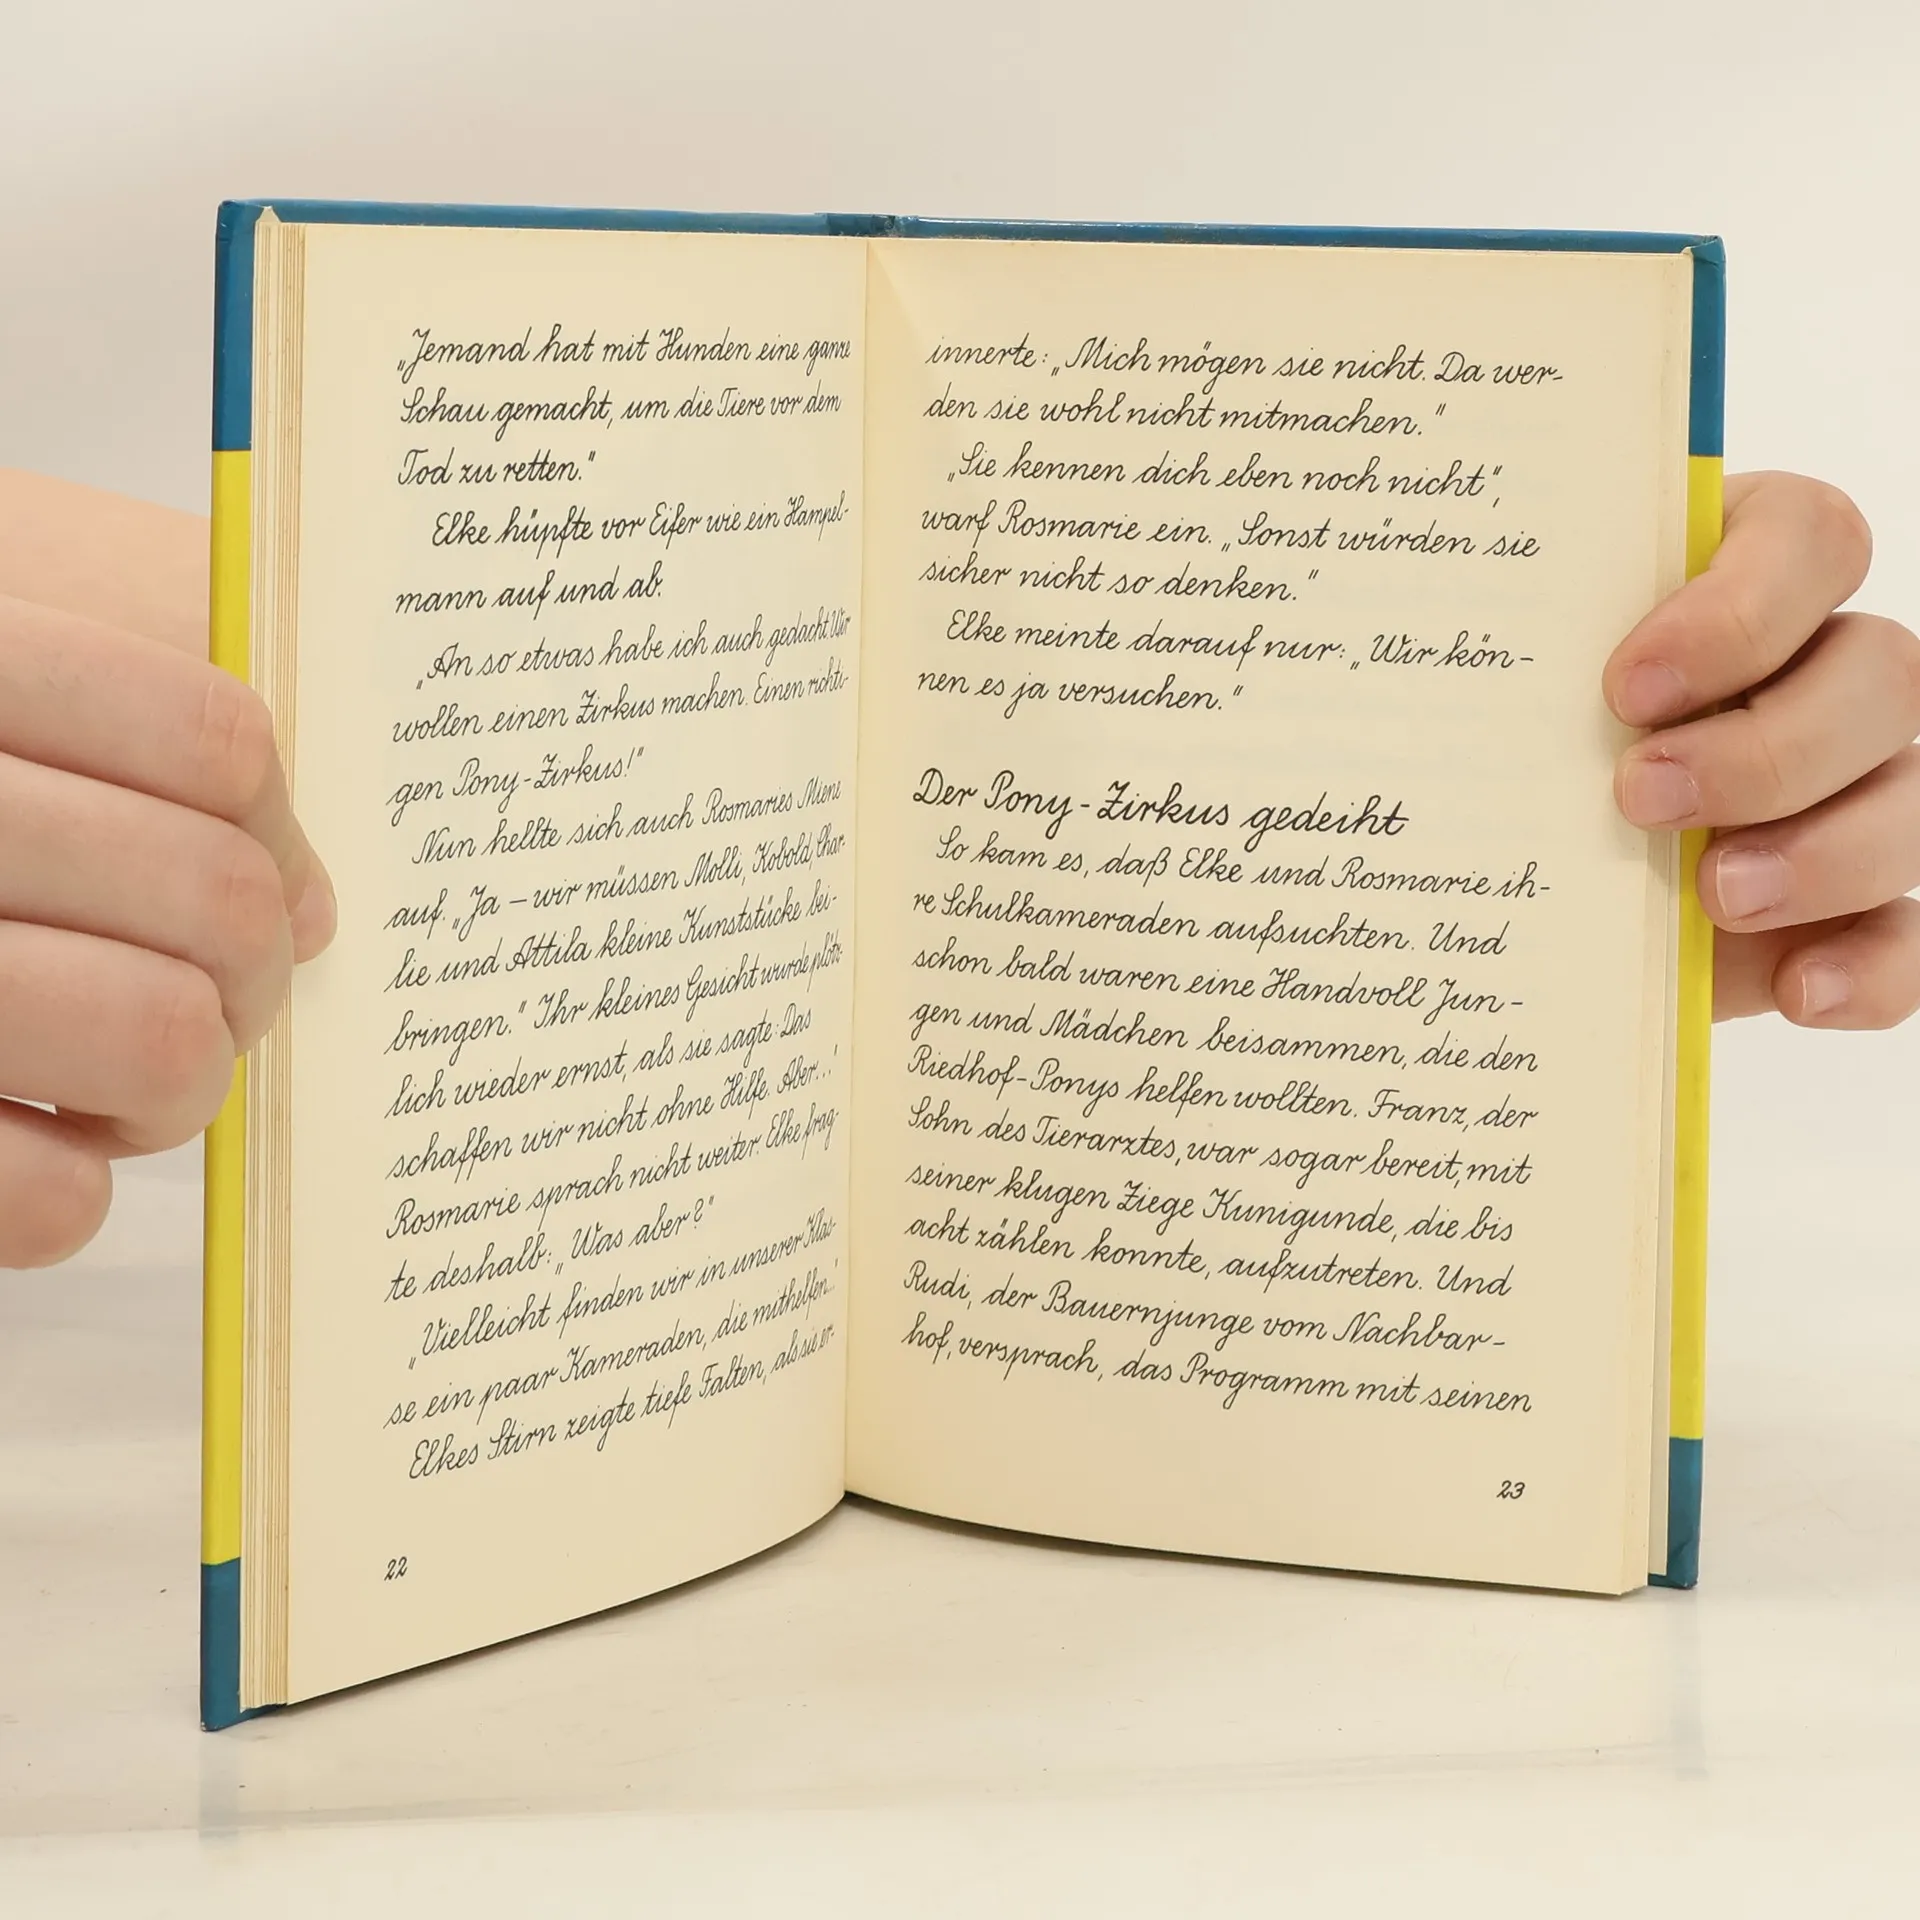 „Jemand hat mit Hunden eine ganze
Schau gemacht, um die Tiere vor dem
Tod zu retten."
Elke hüpfte vor Eifer wie ein Hampel-
mann auf und ab.
„An so etwas habe ich auch gedacht. Wir
wollen einen Zirkus machen. Einen richti-
gen Pony-Zirkus!"
Nun hellte sich auch Rosmaries Miene
auf. „Ja – wir müssen Molli, Kobold, Char-
lie und Attila kleine Kunststücke bei-
bringen." Ihr kleines Gesicht wurde plötz-
lich wieder ernst, als sie sagte: „Das
schaffen wir nicht ohne Hilfe. Aber..."
Rosmarie sprach nicht weiter. Elke frag-
te deshalb: „Was aber?"
„Vielleicht finden wir in unserer Klas-
se ein paar Kameraden, die mithelfen..."
Elkes Stirn zeigte tiefe Falten, als sie er-
22
innerte: „Mich mögen sie nicht. Da wer-
den sie wohl nicht mitmachen."
„Sie kennen dich eben noch nicht",
warf Rosmarie ein. „Sonst würden sie
sicher nicht so denken."
Elke meinte darauf nur: „Wir kön-
nen es ja versuchen."
Der Pony-Zirkus gedeiht
So kam es, daß Elke und Rosmarie ih-
re Schulkameraden aufsuchten. Und
schon bald waren eine Handvoll Jun-
gen und Mädchen beisammen, die den
Riedhof-Ponys helfen wollten. Franz, der
Sohn des Tierarztes, war sogar bereit, mit
seiner klugen Ziege Kunigunde, die bis
acht zählen konnte, aufzutreten. Und
Rudi, der Bauernjunge vom Nachbar-
hof, versprach, das Programm mit seinen
23